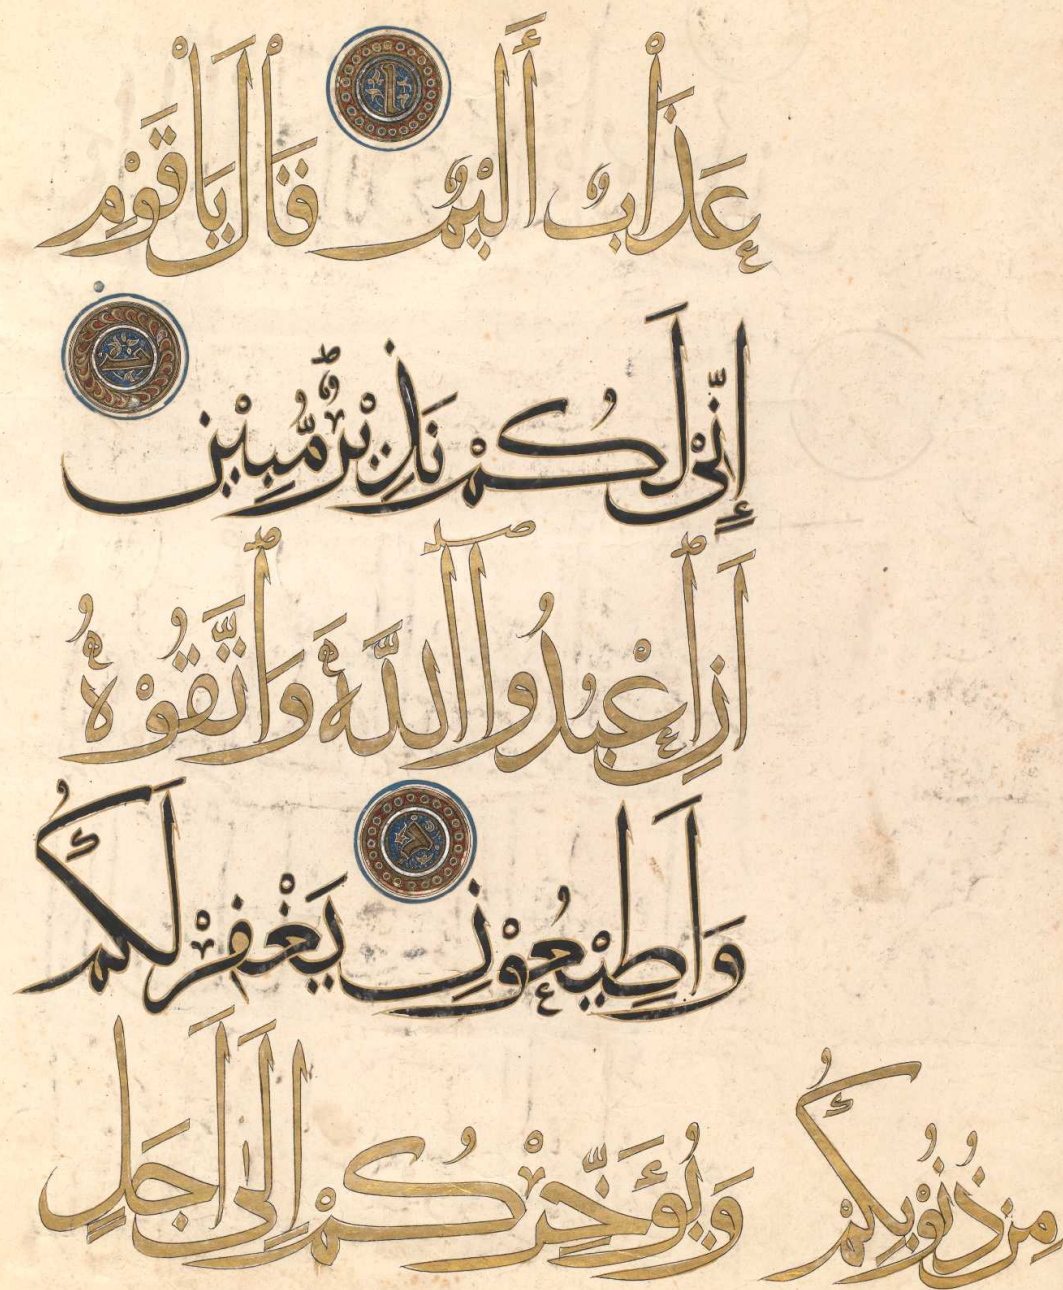 عَذَابٌ أَلِيْمٌ قَالَ يَاقَوْمِ
إِنِّيْ لَكُمْ نَذِيْرٌ مُّبِيْنٌ
اَنِ اعْبُدُوا اللَّهَ وَاتَّقُوْهُ
وَاَطِيْعُوْنِ يَغْفِرْ لَكُمْ
مِنْ ذُنُوْبِكُمْ وَيُؤَخِّرْكُمْ اِلَى اَجَلٍ